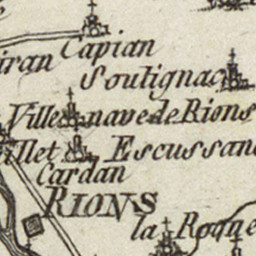 Capian
iran
Soutignac
Villenave de Rions
illet
Escussan
Cardan
RIONS
la Roque